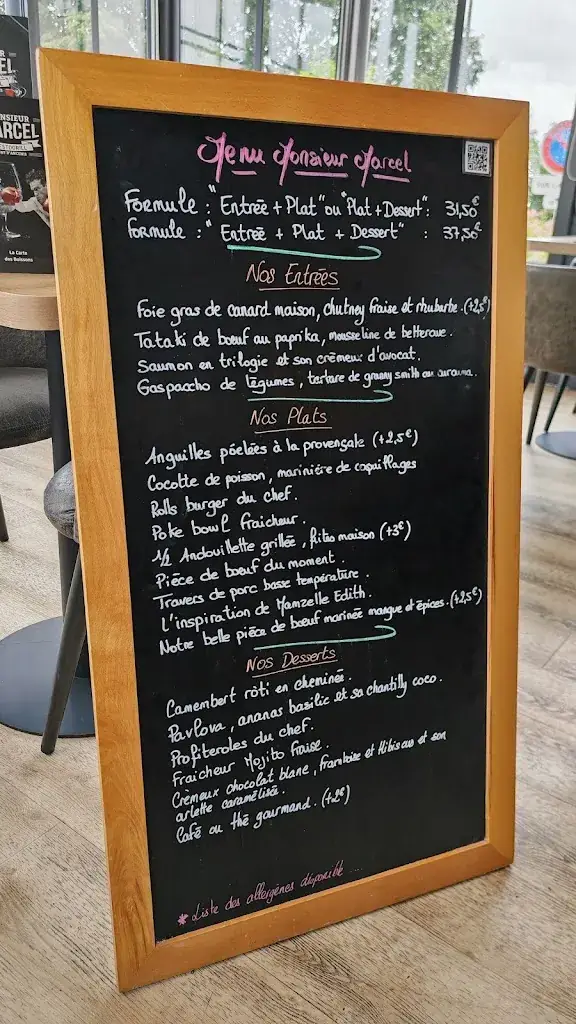 Menu Monsieur Marcel
Formule : "Entrée + Plat" ou "Plat + Dessert" : 31,50€
Formule : " Entrée + Plat + Dessert" : 37,50€
Nos Entrées
Foie gras de canard maison, chutney fraise et rhubarbe. (+2,5€)
Tataki de bœuf au paprika, mousseline de betterave.
Saumon en trilogie et son crémeux d'avocat.
Gaspaccho de légumes, tartare de granny smith au curcuma.
Nos Plats
Anguilles poélées à la provençale (+2,5€)
Cocotte de poisson, marinière de coquillages
Rolls burger du chef.
Poke bowl fraicheur.
1/2 Andouillette grillée, frites maison (+3€)
Pièce de bœuf du moment.
Travers de porc basse température.
L'inspiration de Mamzelle Edith.
Notre belle pièce de bœuf marinée mangue et épices. (+2,5€)
Nos Desserts
Camembert rôti en cheminée.
Pavlova, ananas basilic et sa chantilly coco.
Profiteroles du chef.
Fraicheur Mojito fraise.
Crèmeux chocolat blanc, framboise et Hibiscus et son
arlette caramélisée.
Café ou thé gourmand. (+2€)
* Liste des allergènes disponible ...
ARCEL
La Carte
des Boissons